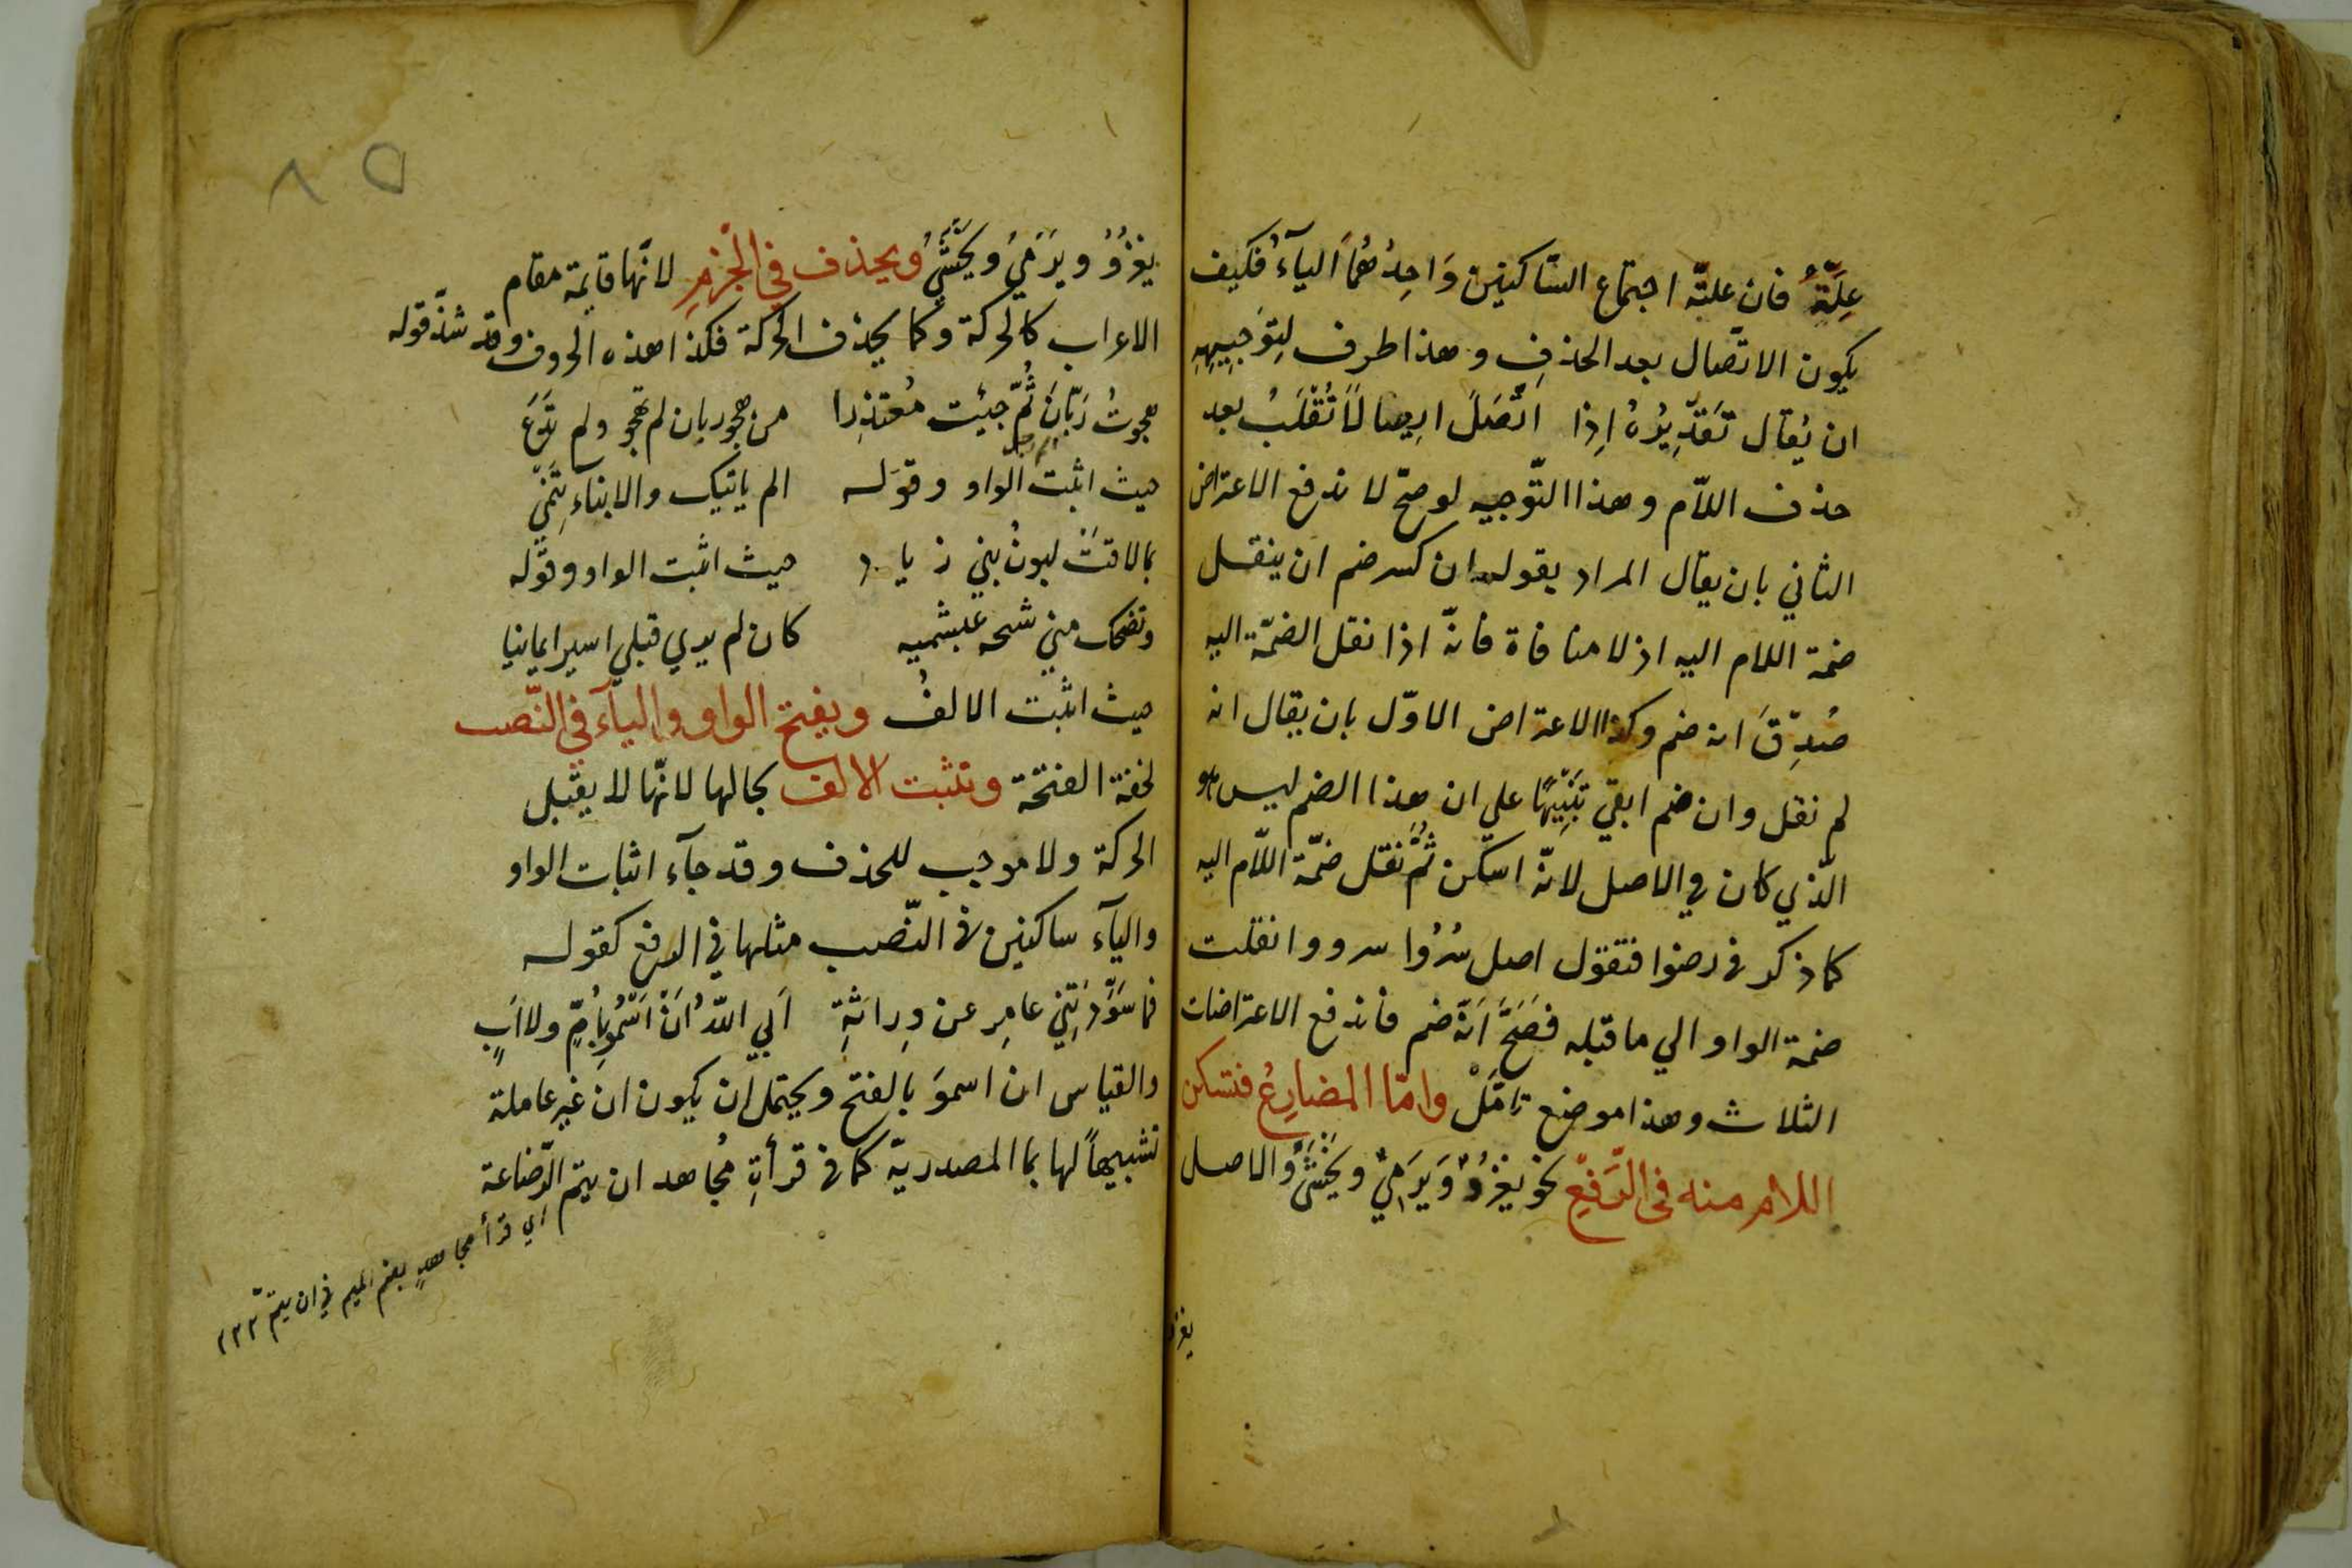 عِلّةٌ فان علته اجتماع السّاكنين وَاحِدُهُمَا اليآءُ فكيف
يكون الاتّصال بعد الحذفِ وهذا طرف لِتوَجيِهِ
ان يُقال تَقدِيرُهُ اِذا اتّصَلَ ايضا لَا تُقْلَبُ بعد
حذف اللاّم وهذا التّوجيه لو صحّ لا ندفع الاعتراض
الثاني بان يقال المراد بقوله ان كسر ضم ان ينقل
ضمة اللام اليه اذ لا منافاة فانّه اذا نقل الضمّة اليه
صُدِّقَ انه ضم وكذا الاعتراض الاوّل بان يقال انه
لم نقل وان ضم ابقي تَنْبِيهًا علي ان هذا الضم ليس هو
الّذي كان في الاصل لانّه اسكن ثُمَّ نقل ضمّة اللاّم اليه
كما ذكر في رضوا فتقول اصل سُرُوا سرووا نقلت
ضمة الواو الي ما قبله فَصَحَّ اَنّهُ ضم فاندفع الاعتراضات
الثلاث وهذا موضع تامّلْ وامّا المضارِعُ فتسكن
اللام منه في الرَّفعِ نحو يغزُو وَيَرمِي ويَخْشَى والاصل
يغزو
٨٥
يغزُوُ ويَرمِيُ ويَخْشَيُ ويحذف في الْجَزمِ لانّها قايمة مقام
الاعراب كالحركة وكما يحذف الحركة فكذا هذه الحروف وقد شذّ قوله
هجوتُ زبّانَ ثُمّ جيئت مُعتذِرا من هجو زبان لم تهجو ولم تدَعَ
حيث اثبت الواو وقوله الم ياتيك والابناء تَنْمِي
بما لاقتْ لبونُ بني زياد حيث اثبت الواو وقوله
وتضحك مني شيخه عبشميه كان لم يري قبلي اسيرا يمانيا
حيث اثبت الالفُ ويفتح الواو واليآء في النّصب
لخفة الفتحة وتثبت الالف بحالها لانّها لا يقبل
الحركة ولا موجب للحذف وقد جآء اثبات الواو
واليآء ساكنين في النّصب مثلها في الرفع كقوله
فما سَوَّدَتْنِي عامِر عن وِراثةِ اَبي اللّهُ اَنْ اَسْمُو بِاُمٍّ ولا اَبٍ
والقياس ان اسموَ بالفتح ويحتمل ان يكون ان غير عاملة
تشبيهاً لها بما المصدريّة كما في قرأةِ مُجاهد ان يتم الرّضاعة
اي قرأ مجاهدٍ بضم الميم في ان يتمّ